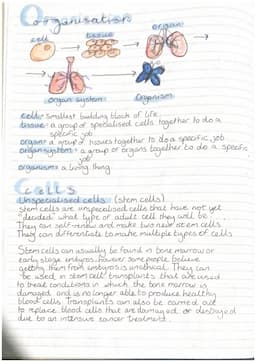 Organisation
cell
tissue
organ
organ system
organism
cell= smallest building block of life
tissue= a group of specialised cells together to do a
specific job
organ= a group of tissues together to do a specific job
organ system= a group of organs together to do a specific
job
organism= a living thing
Cells
Unspecialised cells (stem cells)
stem cells are unspecialised cells that have not yet
"decided" what type of adult cell they will be.
They can self-renew and make two new stem cells
They can differentiate to make multiple types of cells
Stem cells can usually be found in bone marrow or
early stage embryos, however some people believe
getting them from embryos is unethical. They can
be used in stem cell transplants that are used
to treat conditions in which the bone marrow is
damaged and is no longer able to produce healthy
blood cells. Transplants can also be carried out
to replace blood cells that are damaged or destroyed
due to an intensive cancer treatment.